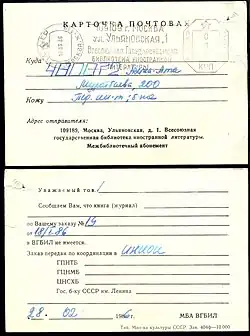 КАРТОЧКА ПОЧТОВАЯ
109189, Г. МОСКВА
УЛ. УЛЬЯНОВСКАЯ, 1
ВСЕСОЮЗНАЯ ГОСУДАРСТВЕННАЯ
БИБЛИОТЕКА ИНОСТРАННОЙ
ЛИТЕРАТУРЫ
Куда
200
Кому Пед. ин-т;
Адрес отправителя:
109189, Москва, Ульяновская, д. 1. Всесоюзная
государственная библиотека иностранной литературы.
Межбиблиотечный абонемент
Уважаемый тов.!
Сообщаем Вам, что книга (журнал)
по Вашему заказу № 19
от 18/I-86
в ВГБИЛ не имеется.
Заказ передан по координации в ИНИОН
ГПНТБ
ГЦНМБ
ЦНСХБ
Гос. б-ку СССР им. Ленина
28. 02 1986 г. МБА ВГБИЛ
Тип. Мин-ва культуры СССР. Зак.